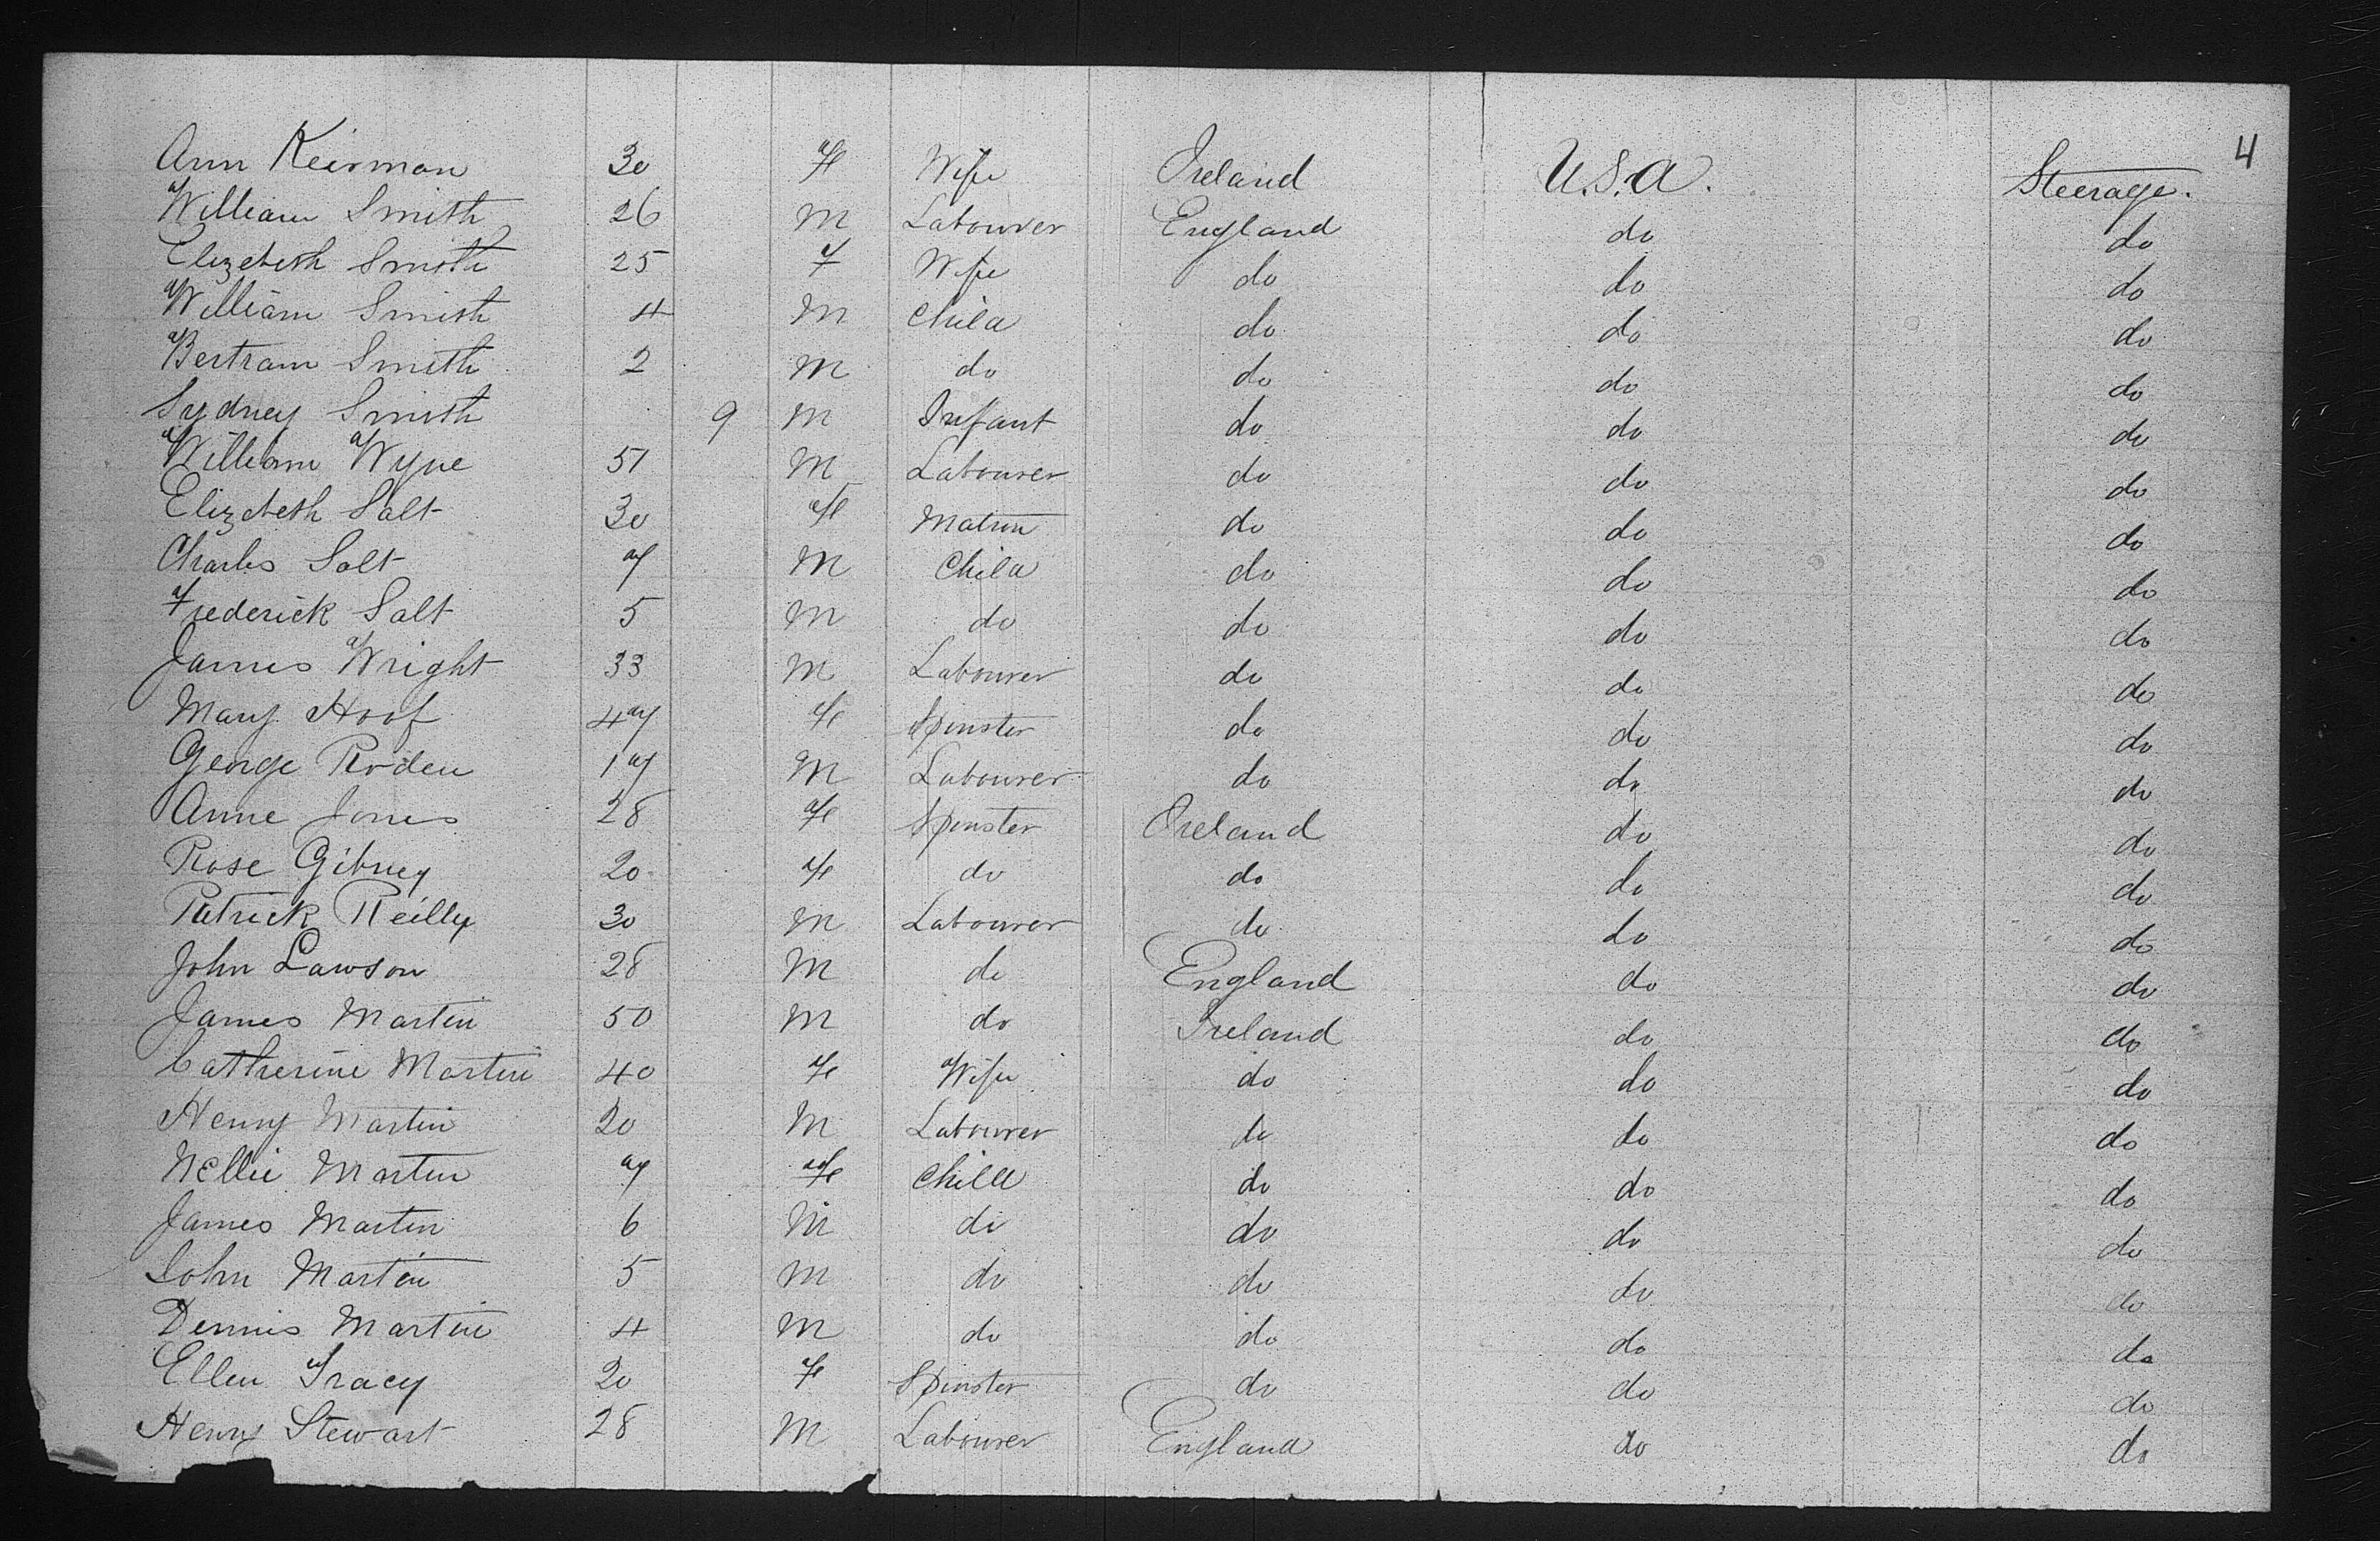 4
Ann Keirman 30 F Wife Ireland U.S.A. Steerage.
William Smith 26 M Labourer England do do
Elizabeth Smith 25 F Wife do do do
William Smith 4 M Child do do do
Bertram Smith 2 M do do do do
Sydney Smith 9 M Infant do do do
William Wyne 51 M Labourer do do do
Elizabeth Salt 30 F Matron do do do
Charles Salt 7 M Child do do do
Frederick Salt 5 M do do do do
James Wright 33 M Labourer do do do
Mary Hoof 47 F Spinster do do do
George Roden 17 M Labourer do do do
Anne Jones 28 F Spinster Ireland do do
Rose Gibney 20 F do do do do
Patrick Reilly 30 M Labourer do do do
John Lawson 28 M do England do do
James Martin 50 M do Ireland do do
Catherine Martin 40 F Wife do do do
Henry Martin 20 M Labourer do do do
Nellie Martin 7 F Child do do do
James Martin 6 M do do do do
John Martin 5 M do do do do
Dennis Martin 4 M do do do do
Ellen Tracy 20 F Spinster do do do
Henry Stewart 28 M Labourer England do do